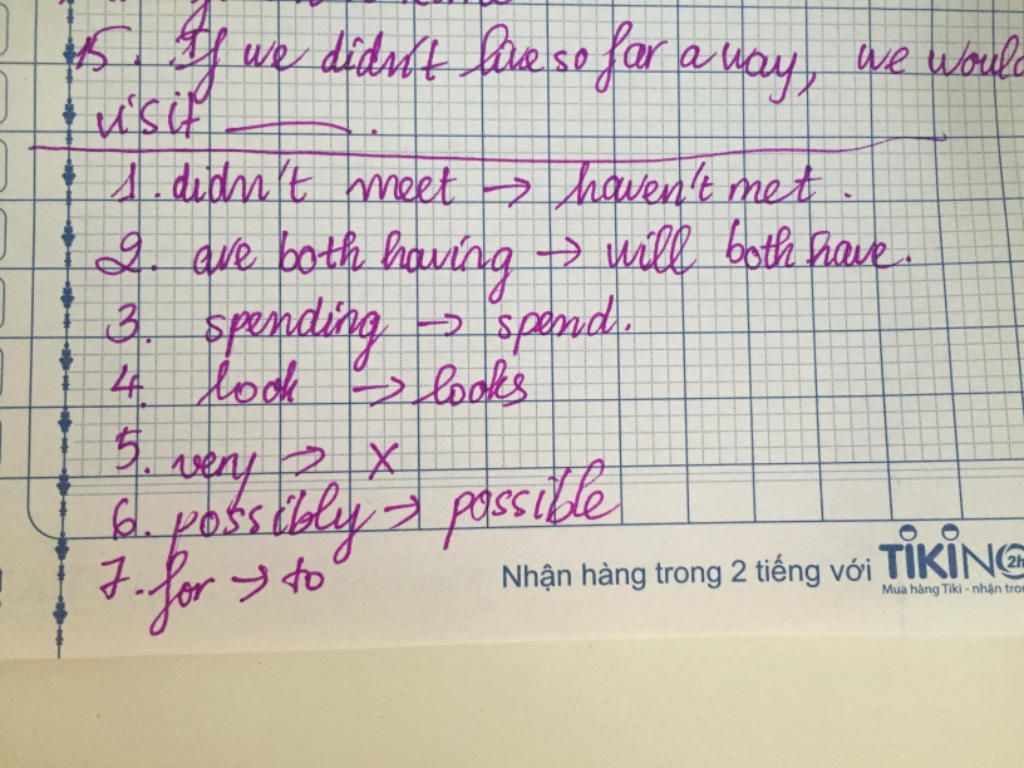 15. If we didn't live so far away, we would
visit ____.
1. didn't meet → haven't met.
2. are both having → will both have.
3. spending → spend.
4. look → looks
5. very → X
6. possibly → possible
7. for → to
Nhận hàng trong 2 tiếng với TIKINOW 2h
Mua hàng Tiki - nhận tron